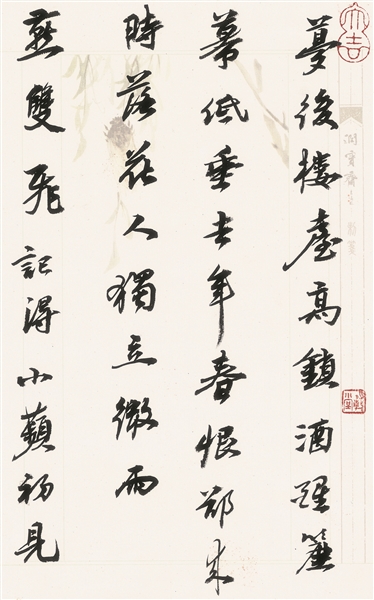 大吉
夢後樓臺高鎖酒醒簾
幕低垂去年春恨卻来
時落花人獨立微雨
燕雙飛記得小蘋初見